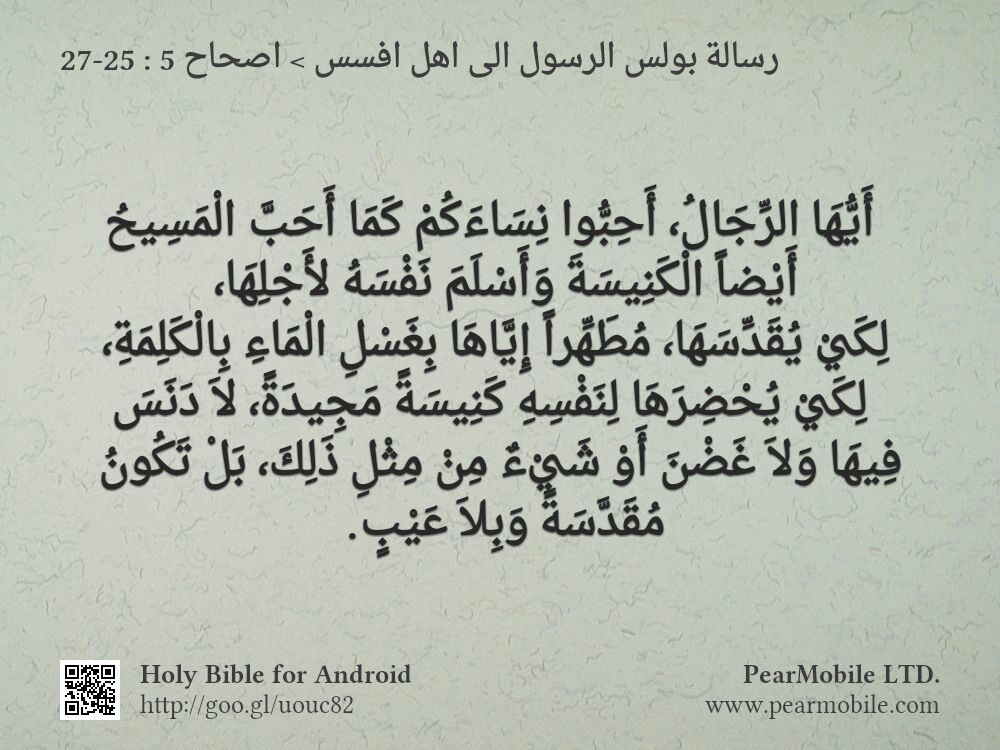 رسالة بولس الرسول الى اهل افسس > اصحاح 5 : 25-27
أَيُّهَا الرِّجَالُ، أَحِبُّوا نِسَاءَكُمْ كَمَا أَحَبَّ الْمَسِيحُ
أَيْضاً الْكَنِيسَةَ وَأَسْلَمَ نَفْسَهُ لأَجْلِهَا،
لِكَيْ يُقَدِّسَهَا، مُطَهِّراً إِيَّاهَا بِغَسْلِ الْمَاءِ بِالْكَلِمَةِ،
لِكَيْ يُحْضِرَهَا لِنَفْسِهِ كَنِيسَةً مَجِيدَةً، لاَ دَنَسَ
فِيهَا وَلاَ غَضْنَ أَوْ شَيْءٌ مِنْ مِثْلِ ذَلِكَ، بَلْ تَكُونُ
مُقَدَّسَةً وَبِلاَ عَيْبٍ.
Holy Bible for Android
http://goo.gl/uouc82
PearMobile LTD.
www.pearmobile.com